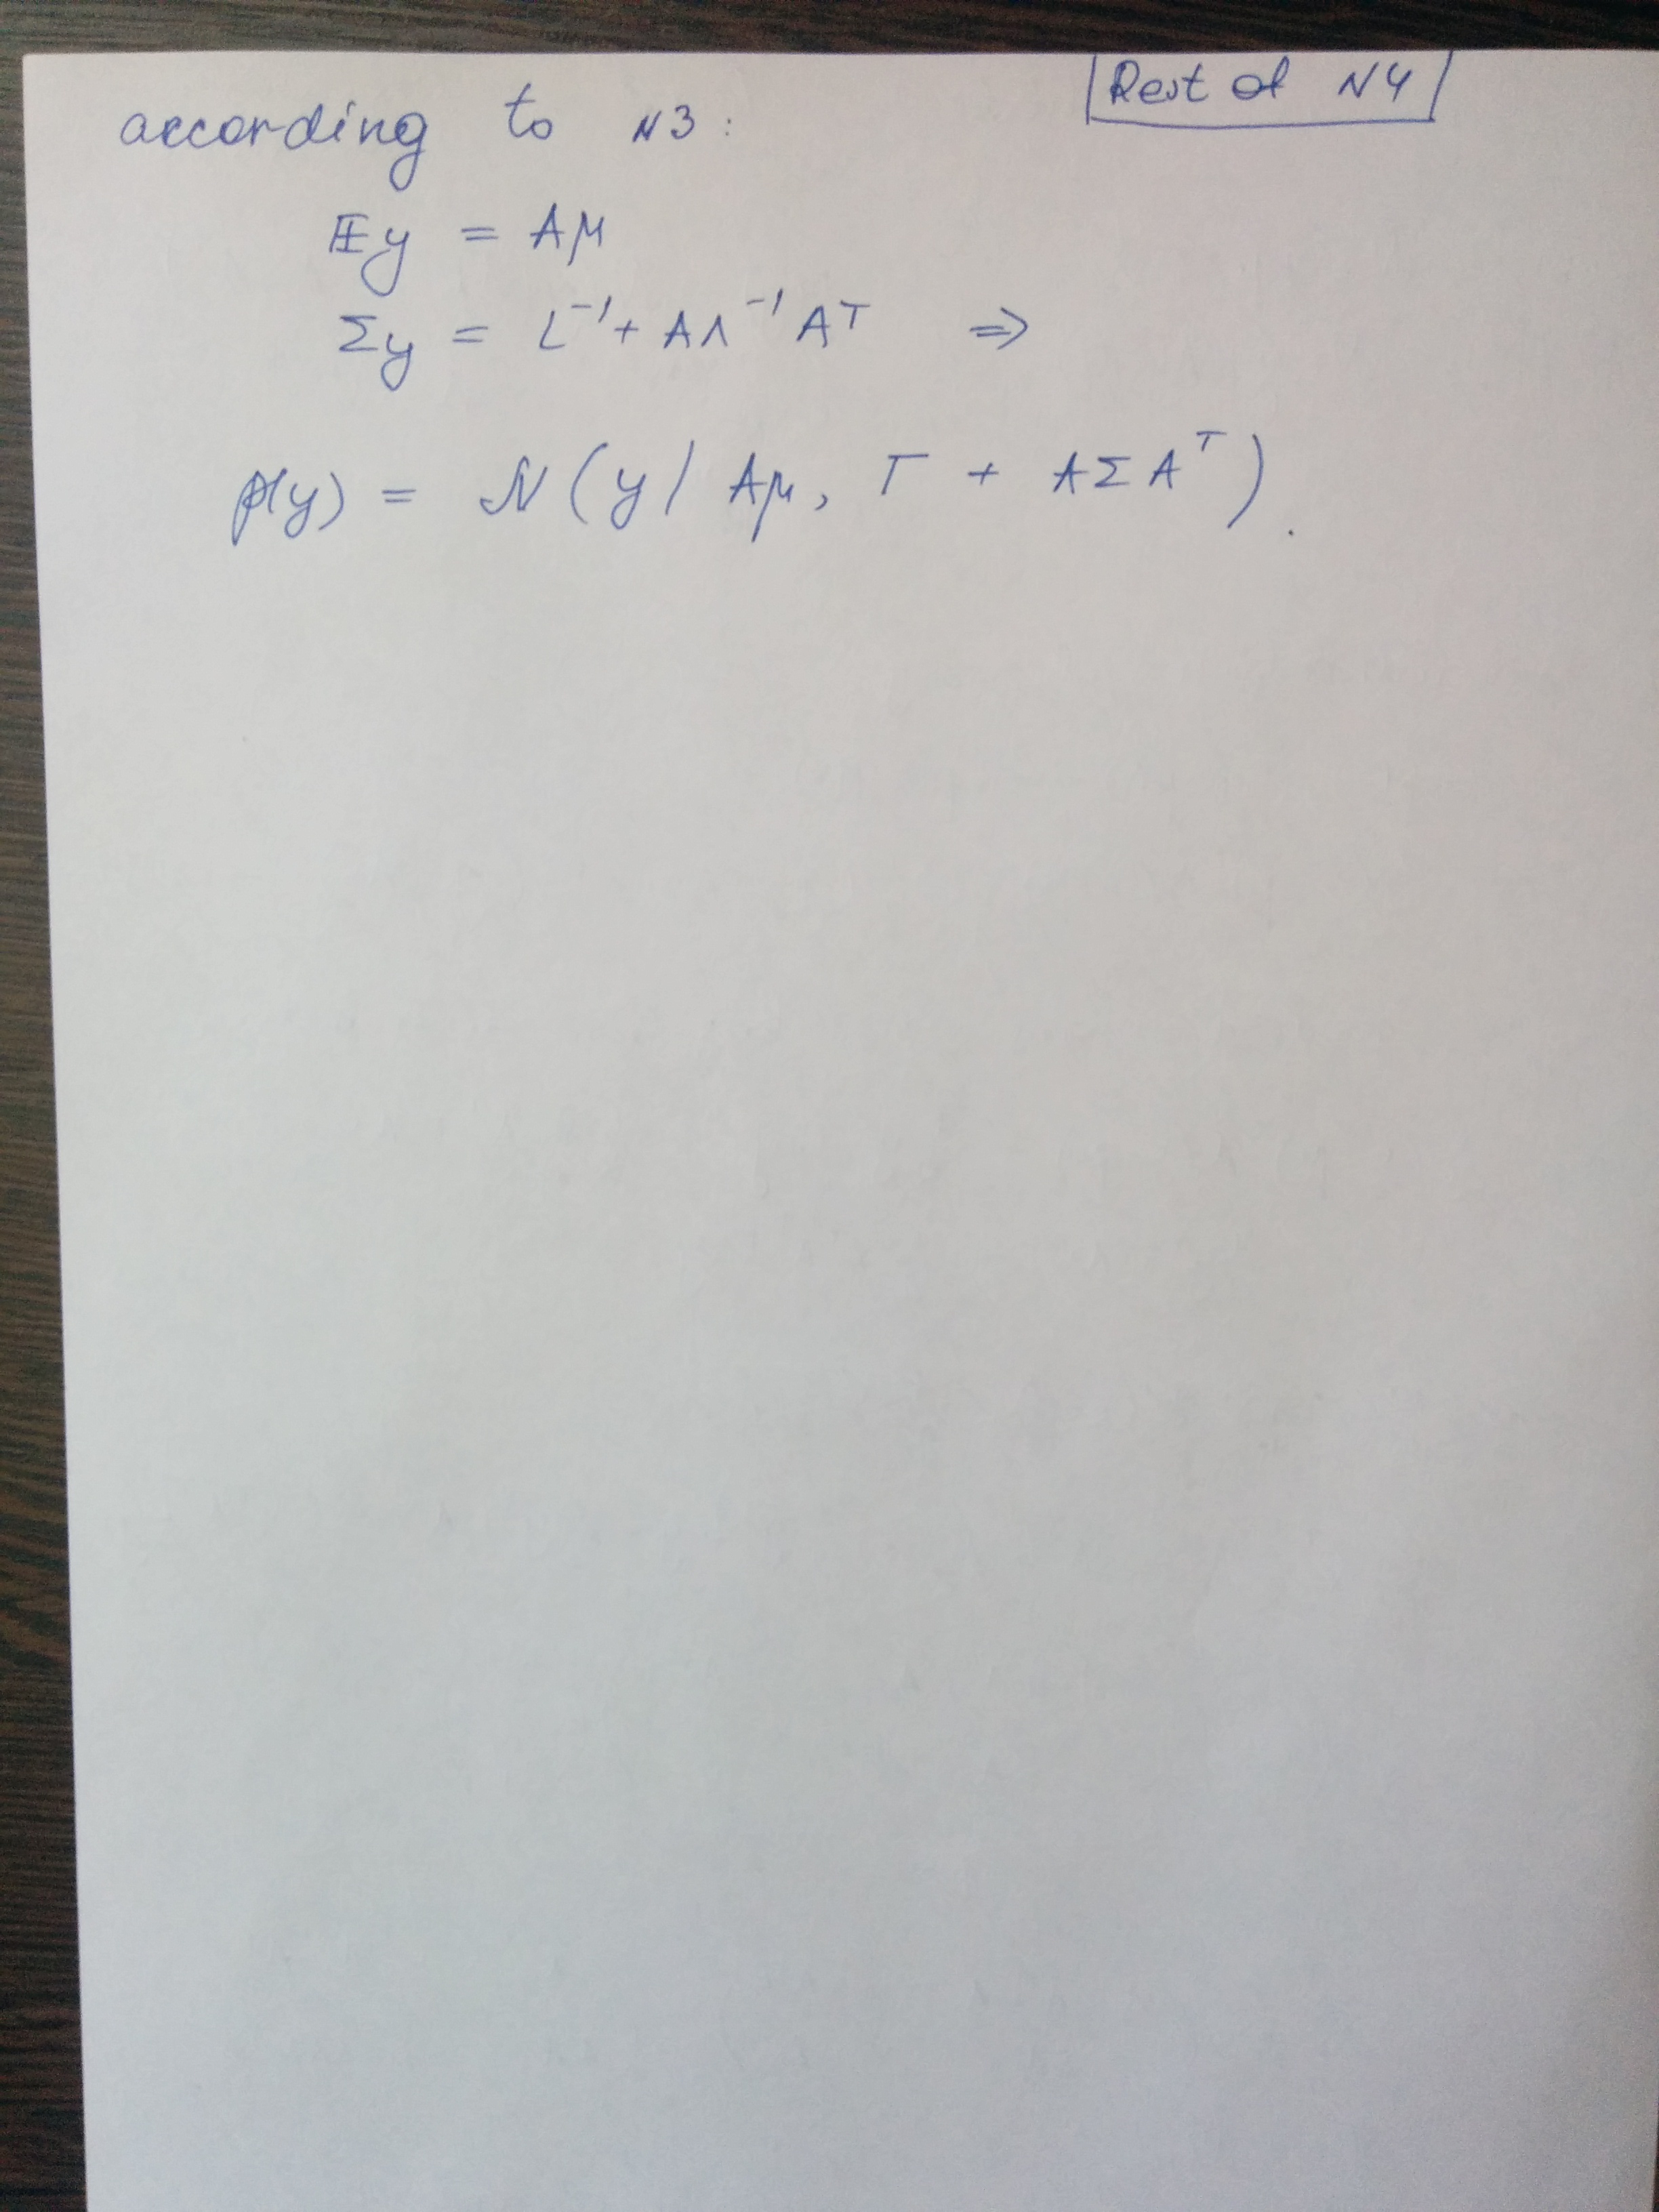 Rest of N4
according to N3:
𝔼y = Aμ
Σy = L⁻¹ + AΛ⁻¹Aᵀ ⇒
p(y) = 𝒩(y | Aμ, Γ + AΣAᵀ).